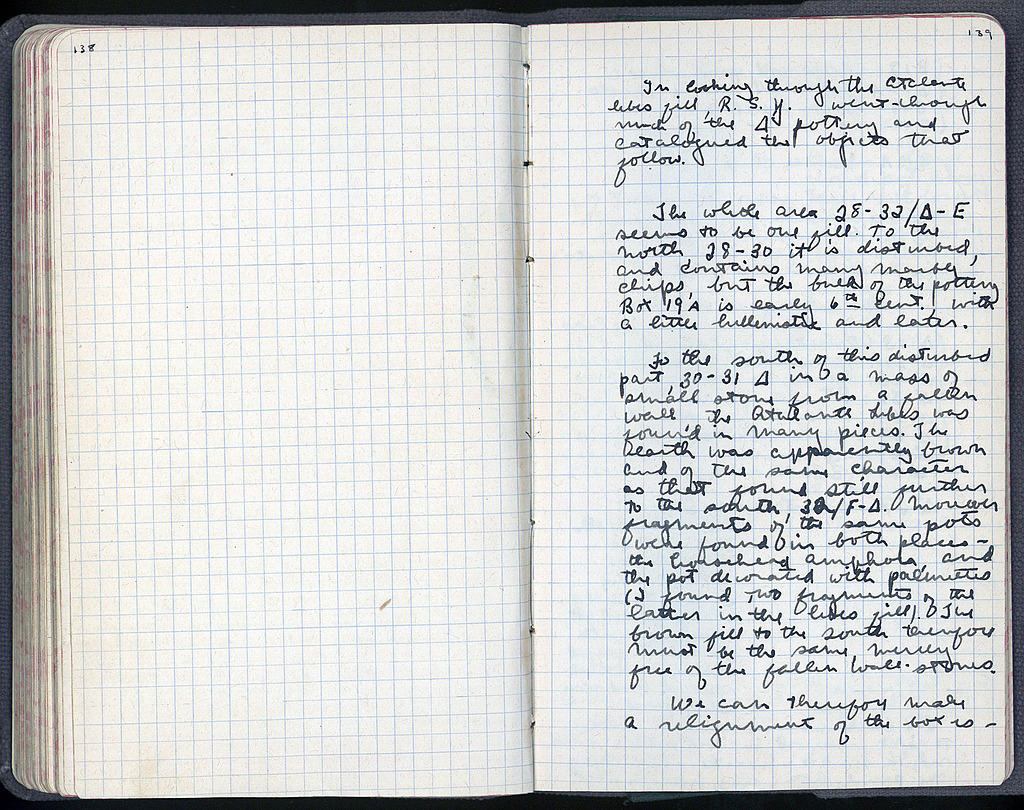 138
139
In looking through the Atalante
lebes fill, R. S. Y. went through
much of the Δ pottery and
catalogued the objects that
follow.
The whole area 28-32/Δ-E
seems to be one fill. To the
north 28-30 it is disturbed,
and contains many marble
chips, but the bulk of the pottery
Box 19A is early 6th cent. with
a little hellenistic and later.
To the south of this disturbed
part, 30-31 Δ in a mass of
small stone from a fallen
wall the Atalante lebes was
found in many pieces. The
earth was apparently brown
and of the same character
as that found still further
to the south, 32/F-Δ. Moreover
fragments of the same pots
were found in both places -
the horsehead amphora, and
the pot decorated with palmettes
(I found two fragments of the
latter in the lebes fill). The
brown fill to the south therefore
must be the same, merely
free of the fallen wall-stones.
We can therefore make
a realignment of the boxes -